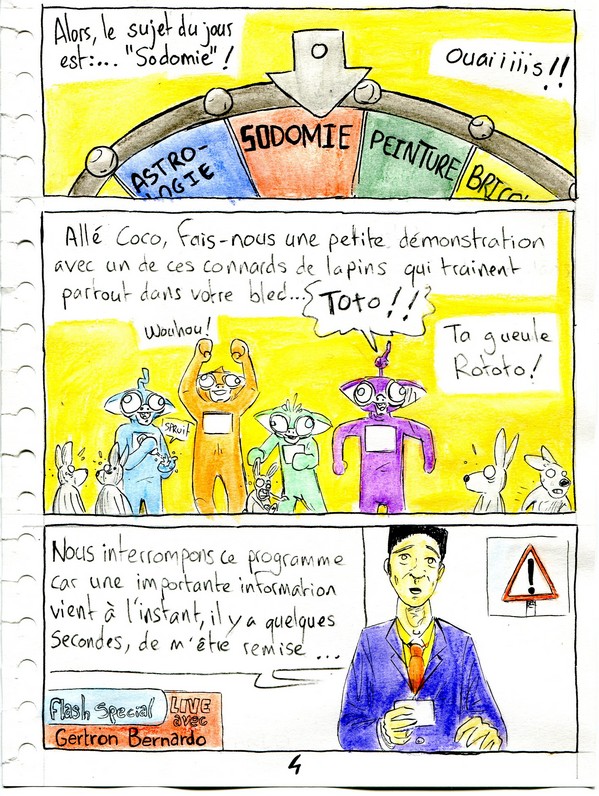 Alors, le sujet du jour
est:... "Sodomie"!
Ouaiiiiis!!
ASTRO-
LOGIE
SODOMIE
PEINTURE
BRICO
Allé Coco, fais-nous une petite démonstration
avec un de ces connards de lapins qui trainent
partout dans votre bled...
Toto!!
Wouhou!
Ta gueule
Rototo!
SPRUIT
Nous interrompons ce programme
car une importante information
vient à l'instant, il y a quelques
secondes, de m'être remise ...
!
Flash Special
LIVE
avec
Gertron Bernardo
4